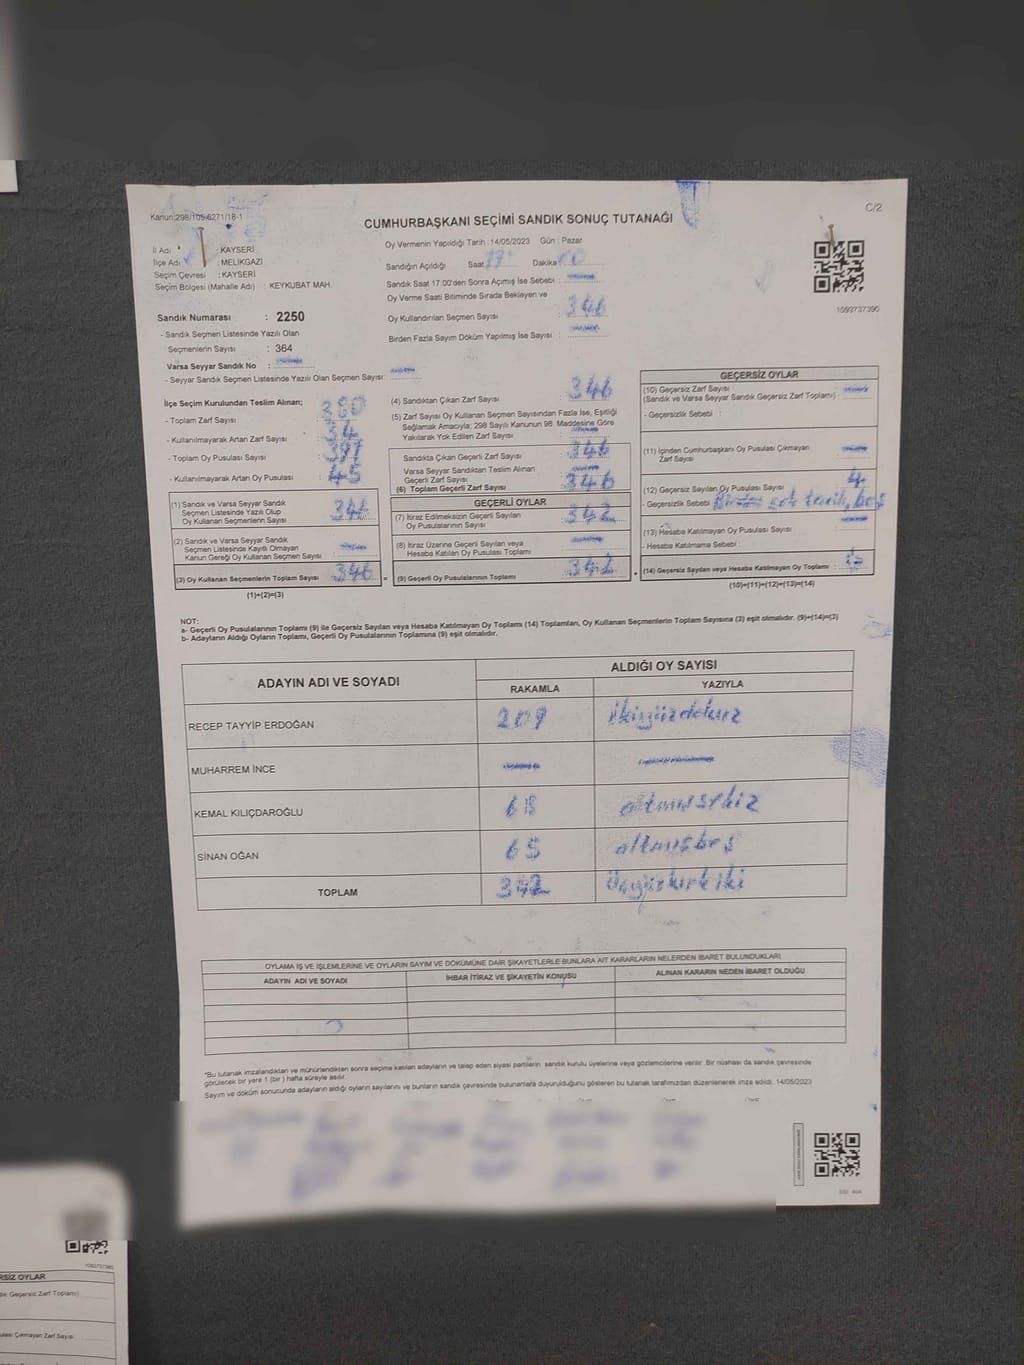 Kanun:298/105,6271/18-1
C/2
CUMHURBAŞKANI SEÇİMİ SANDIK SONUÇ TUTANAĞI
İl Adı : KAYSERİ
İlçe Adı : MELİKGAZİ
Seçim Çevresi : KAYSERİ
Seçim Bölgesi (Mahalle Adı) : KEYKUBAT MAH.
Oy Vermenin Yapıldığı Tarih :14/05/2023 Gün : Pazar
Sandığın Açıldığı Saat 17 Dakika 00
Sandık Saat 17:00'den Sonra Açımış İse Sebebi :
Oy Verme Saati Bitiminde Sırada Bekleyen ve
Oy Kullandırılan Seçmen Sayısı 346
Birden Fazla Sayım Döküm Yapılmış İse Sayısı :
1093737390
Sandık Numarası : 2250
- Sandık Seçmen Listesinde Yazılı Olan
Seçmenlerin Sayısı : 364
Varsa Seyyar Sandık No :
- Seyyar Sandık Seçmen Listesinde Yazılı Olan Seçmen Sayısı:
İlçe Seçim Kurulundan Teslim Alınan;
- Toplam Zarf Sayısı : 380
- Kullanılmayarak Artan Zarf Sayısı : 34
- Toplam Oy Pusulası Sayısı : 391
- Kullanılmayarak Artan Oy Pusulası : 45
(1) Sandık ve Varsa Seyyar Sandık
Seçmen Listesinde Yazılı Olup
Oy Kullanan Seçmenlerin Sayısı 346
(2) Sandık ve Varsa Seyyar Sandık
Seçmen Listesinde Kayıtlı Olmayan
Kanun Gereği Oy Kullanan Seçmen Sayısı
(3) Oy Kullanan Seçmenlerin Toplam Sayısı 346 =
(1)+(2)=(3)
(4) Sandıktan Çıkan Zarf Sayısı 346
(5) Zarf Sayısı Oy Kullanan Seçmen Sayısından Fazla İse, Eşitliği
Sağlamak Amacıyla; 298 Sayılı Kanunun 98. Maddesine Göre
Yakılarak Yok Edilen Zarf Sayısı
Sandıkta Çıkan Geçerli Zarf Sayısı 346
Varsa Seyyar Sandıktan Teslim Alınan
Geçerli Zarf Sayısı
(6) Toplam Geçerli Zarf Sayısı 346
GEÇERLİ OYLAR
(7) İtiraz Edilmeksizin Geçerli Sayılan
Oy Pusulalarının Sayısı 342
(8) İtiraz Üzerine Geçerli Sayılan veya
Hesaba Katılan Oy Pusulası Toplamı
(9) Geçerli Oy Pusulalarının Toplamı 342 +
GEÇERSİZ OYLAR
(10) Geçersiz Zarf Sayısı
(Sandık ve Varsa Seyyar Sandık Geçersiz Zarf Toplamı)
- Geçersizlik Sebebi :
(11) İçinden Cumhurbaşkanı Oy Pusulası Çıkmayan
Zarf Sayısı
(12) Geçersiz Sayılan Oy Pusulası Sayısı 4
- Geçersizlik Sebebi Birden çok tercih, boş
(13) Hesaba Katılmayan Oy Pusulası Sayısı
- Hesaba Katılmama Sebebi :
(14) Geçersiz Sayılan veya Hesaba Katılmayan Oy Toplamı :
(10)+(11)+(12)+(13)=(14)
NOT:
a- Geçerli Oy Pusulalarının Toplamı (9) ile Geçersiz Sayılan veya Hesaba Katılmayan Oy Toplamı (14) Toplamları, Oy Kullanan Seçmenlerin Toplam Sayısına (3) eşit olmalıdır. (9)+(14)=(3)
b- Adayların Aldığı Oyların Toplamı, Geçerli Oy Pusulalarının Toplamına (9) eşit olmalıdır.
ADAYIN ADI VE SOYADI
ALDIĞI OY SAYISI
RAKAMLA YAZIYLA
RECEP TAYYİP ERDOĞAN 209 ikiyüzdokuz
MUHARREM İNCE
KEMAL KILIÇDAROĞLU 68 altmışsekiz
SİNAN OĞAN 65 altmışbeş
TOPLAM 342 üçyüzkırkiki
OYLAMA İŞ VE İŞLEMLERİNE VE OYLARIN SAYIM VE DÖKÜMÜNE DAİR ŞİKAYETLERLE BUNLARA AİT KARARLARIN NELERDEN İBARET BULUNDUKLARI
ADAYIN ADI VE SOYADI İHBAR İTİRAZ VE ŞİKAYETİN KONUSU ALINAN KARARIN NEDEN İBARET OLDUĞU
*Bu tutanak imzalandıktan ve mühürlendikten sonra seçime katılan adayların ve talep eden siyasi partilerin sandık kurulu üyelerine veya gözlemcilerine verilir. Bir nüshası da sandık çevresinde
görülecek bir yere 1 (bir) hafta süreyle asılır.
Sayım ve döküm sonucunda adayların aldığı oyların sayılarını ve bunların sandık çevresinde bulunanlara duyurulduğunu gösteren bu tutanak tarafımızdan düzenlenerek imza edildi. 14/05/2023
RSİZ OYLAR
Geçersiz Zarf Toplamı)
ulası Çıkmayan Zarf Sayısı